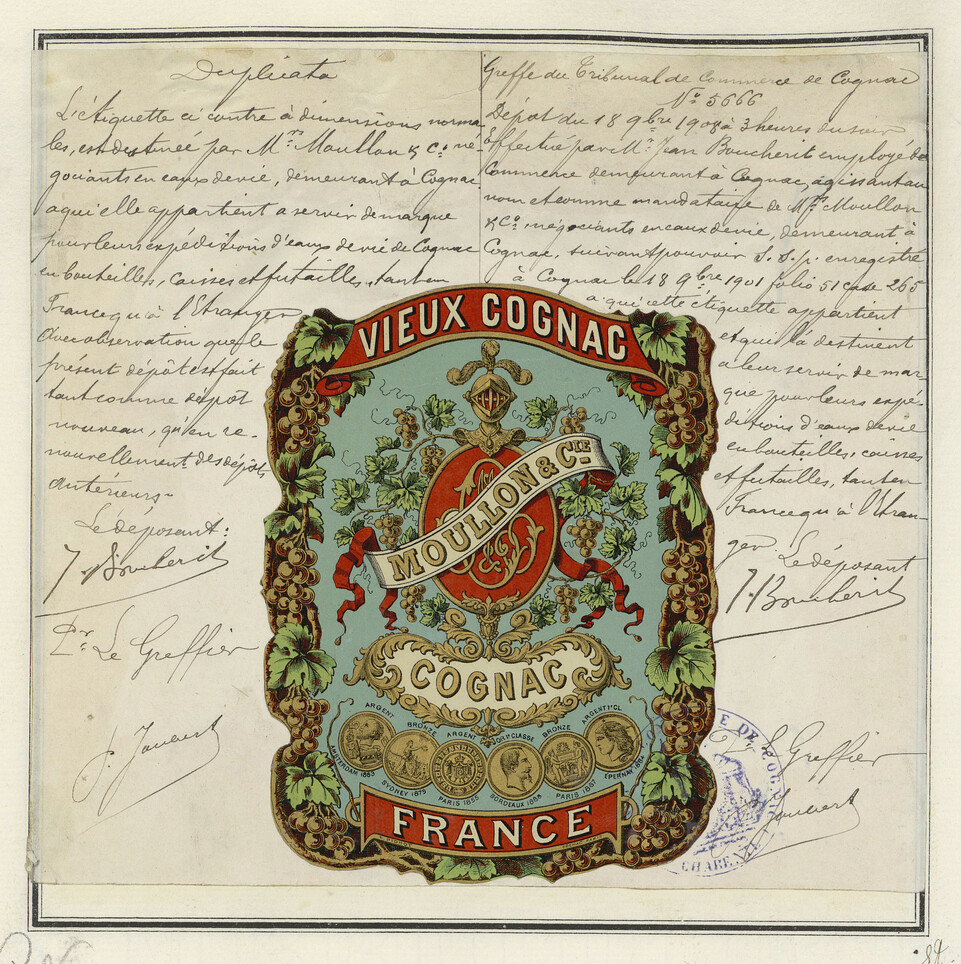 Duplicata
L'étiquette ci contre à dimensions norma-
les, est destinée par M.rs Moullon & C.ie né-
gociants en eaux de vie, demeurant à Cognac
a qui elle appartient a servir de marque
pour leurs expéditions d'eaux de vie de Cognac
en bouteilles, caisses et futailles, tant en
France qu'à l'Etranger
Avec observation que le
présent dépôt est fait
tant comme dépôt
nouveau, qu'en re-
nouvellement des dépôts
antérieurs.
Le déposant:
J. Boucherit
P.r Le Greffier
J. Joubert
Greffe du Tribunal de Commerce de Cognac
N.o 5666
Dépôt du 18 9bre 1908 à 3 heures du soir
Effectué par M.r Jean Boucherit employé de
Commerce demeurant à Cognac, agissant au
nom et comme mandataire de M.rs Moullon
& C.o, négociants en eaux de vie, demeurant à
Cognac, suivant pouvoir S.S.p. enregistré
à Cognac le 18 9bre 1901 folio 51 case 265
a qui cette étiquette appartient
et qui la destinent
a leur servir de mar-
que pour leurs expé-
ditions d'eaux de vie
en bouteilles, caisses
et futailles, tant en
France qu'à l'Etran-
ger. Le déposant
J. Boucherit
Le Greffier
Joubert
VIEUX COGNAC
MOULLON & CIE
COGNAC
ARGENT BRONZE ARGENT OR 1e CLASSE BRONZE ARGENT 1e CL
AMSTERDAM 1883 SYDNEY 1879 PARIS 1855 BORDEAUX 1858 PARIS 1867 EPERNAY
FRANCE
DE COGNAC
CHAREN